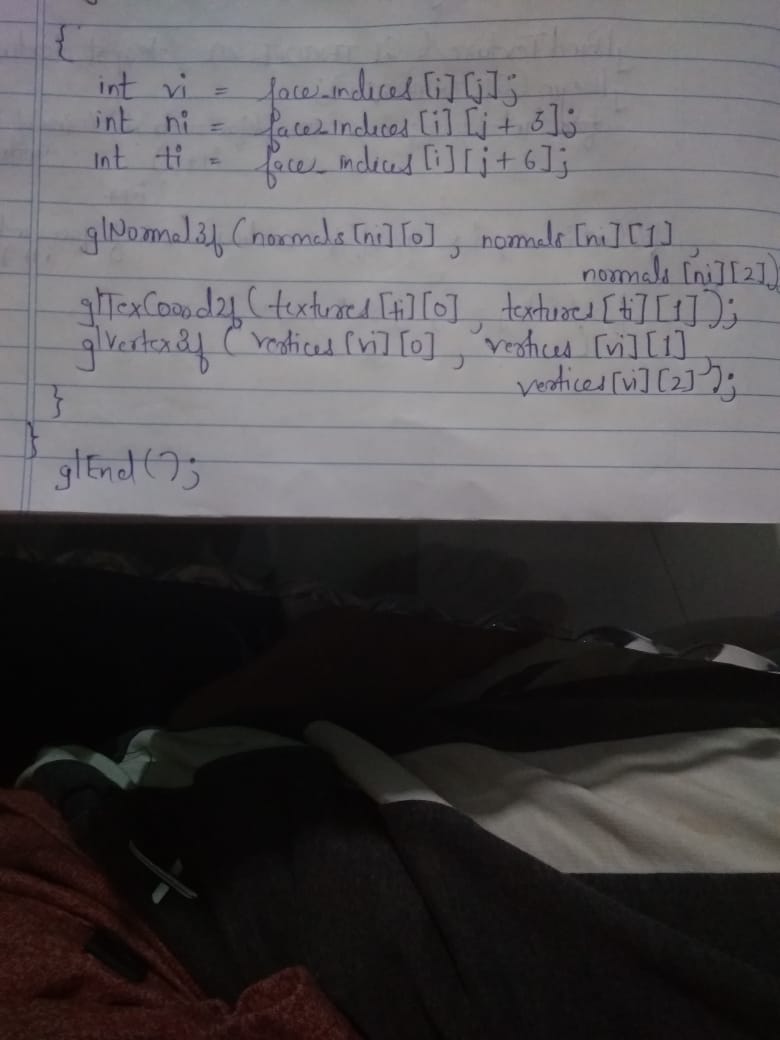 {
int vi = face_indices [i] [j];
int ni = face_indices [i] [j + 3];
int ti = face_indices [i] [j + 6];
glNormal3f (normals [ni] [0], normals [ni] [1],
normals [ni] [2])
glTexCoord2f (textures [ti] [0], textures [ti] [1]);
glVertex3f (vertices [vi] [0], vertices [vi] [1],
vertices [vi] [2]);
}
}
glEnd ();